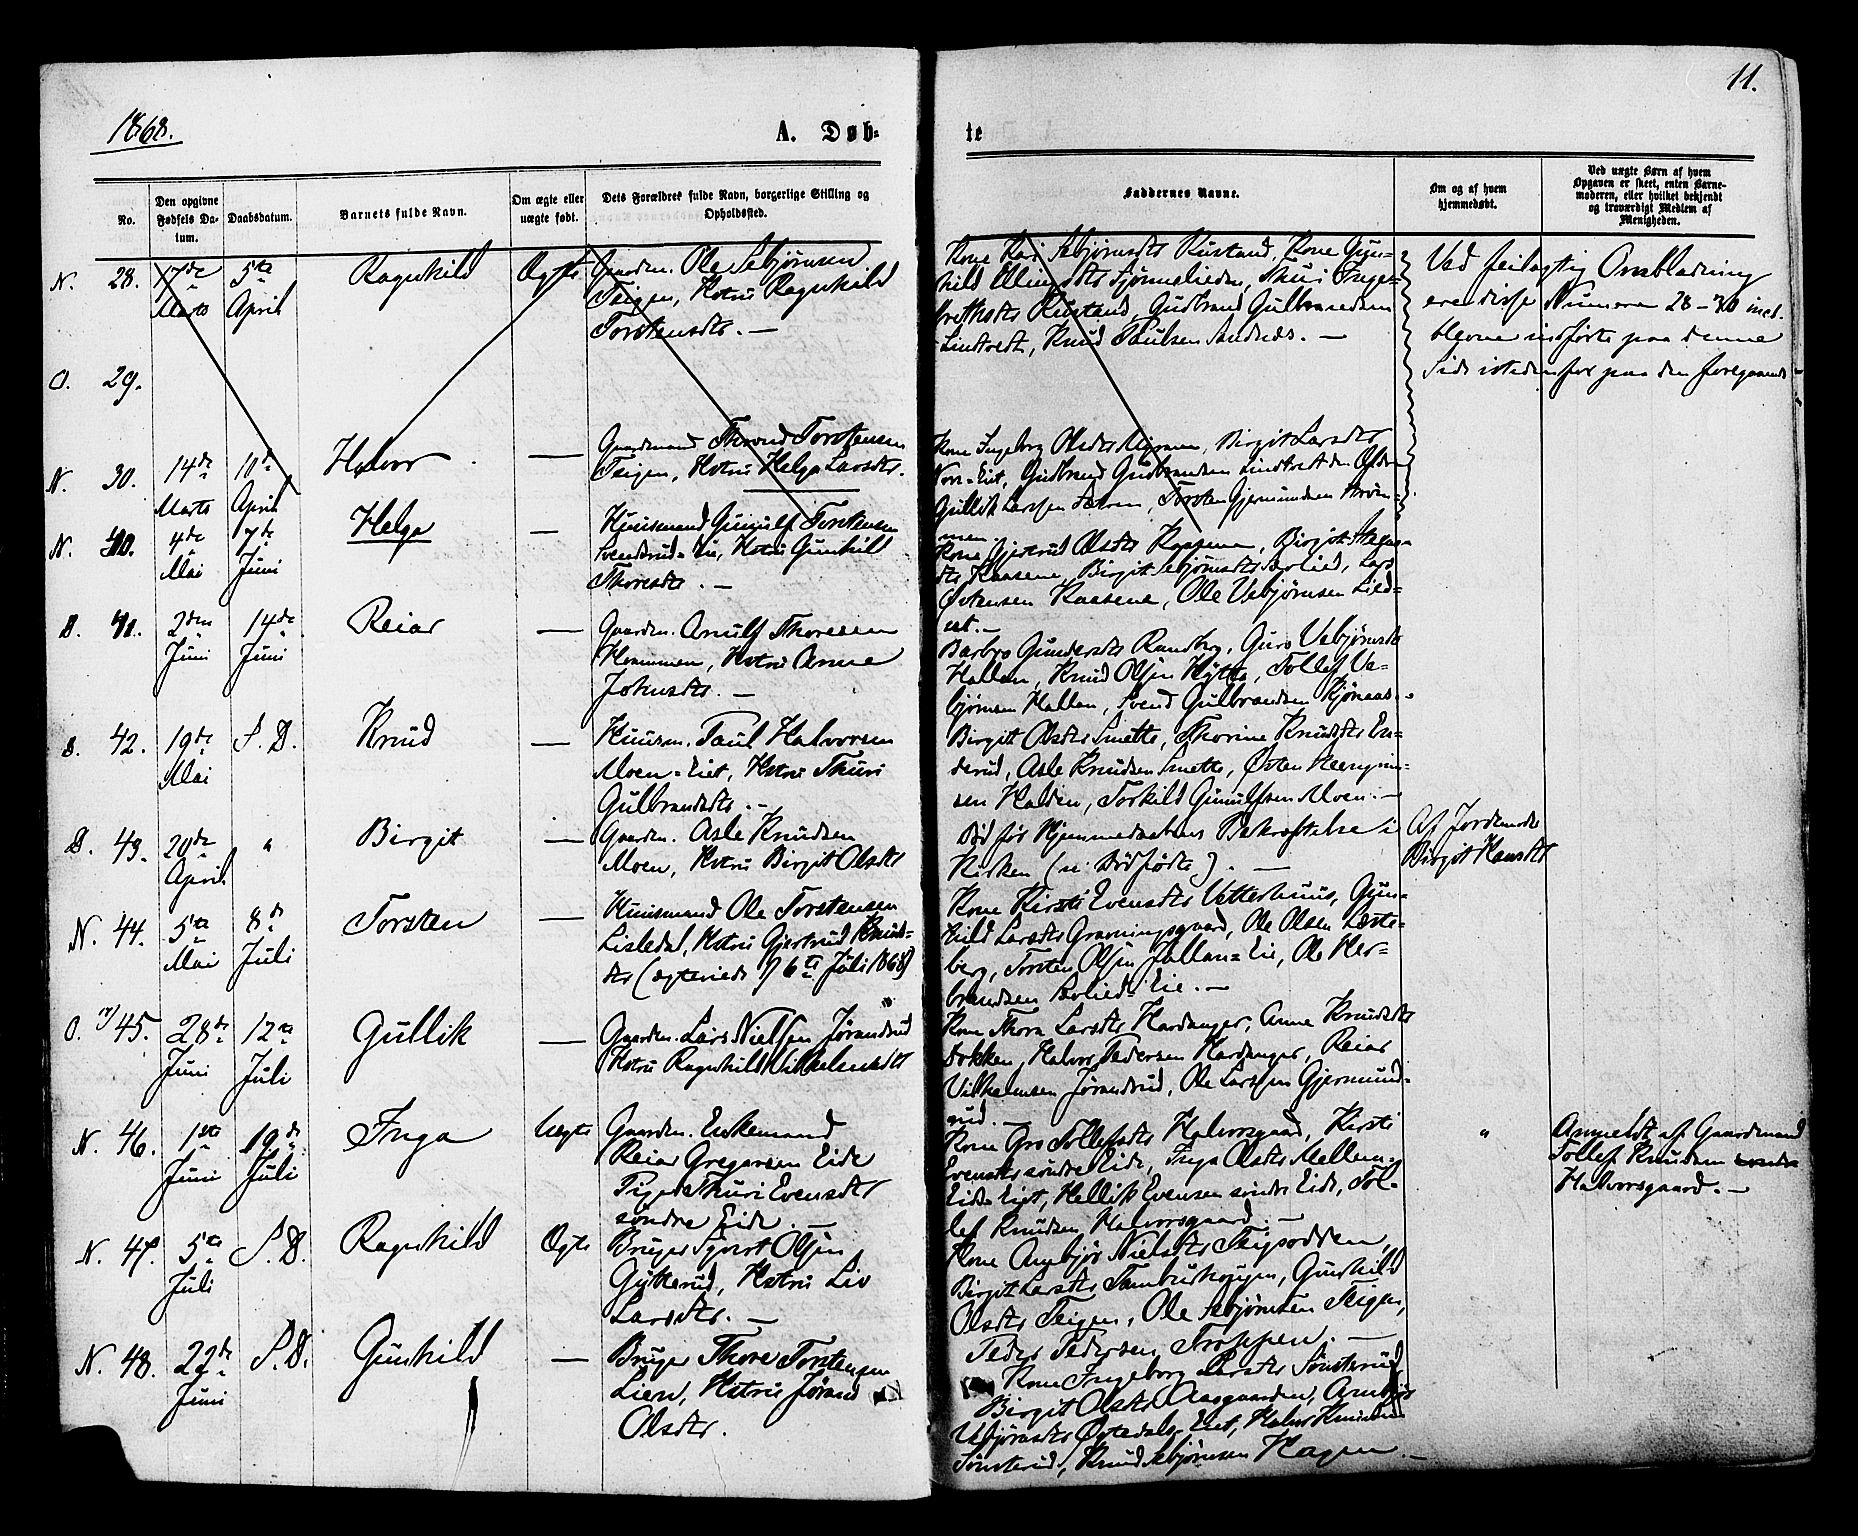 1868.
A. Døb-
te
11.
No.
Den opgivne Fødsels Datum.
Daabsdatum.
Barnets fulde Navn.
Om ægte eller uægte født.
Dets Forældres fulde Navn, borgerlige Stilling og Opholdssted.
Faddernes Navne.
Om og af hvem hjemmedøbt.
Ved uægte Børn af hvem Opgaven er skeet, enten Barnemoderen, eller hvilket bekjendt og troværdigt Medlem af Menigheden.
N. 28. 17de Marts 5te April Ragnhild Ægte
Gaardm. Ole Sebjørnsen
Teigen, Hstru Ragnhild
Torstensdtr. —
Kone Kari Sebjørnsdtr Rustand, Kone Gun-
hild Ellingsdtr
Rustand, Gudbrand Gulbrandsen
Lindtvedt, Knud Paulsen
Ved feilagtig Ombladning
ere disse Numere 28-30 incl.
blevne indførte paa denne
Side istedenfor paa den foregaaende
O. 29.
N. 30. 14de Marts 10de April Halvor —
Gaardmand Thrond Torstensen
Teigen, Hstru Helga Larsdtr.
Kone Ingeborg Olsdtr Birgit Larsdtr
Gudbrand Gudbrandsen Lindtvedt
Gullik Larssen Torsten Gjermundsen
N. 40. 4de Mai 7de Juni Helga —
Huusmand Gunulf Torstensen
Svendsrud-Eie, Hstru Gunhild
Thoresdtr. —
Kone Gjertrud Olsdtr Birgit
Kaasene, Birgit Sebjørnsdtr Bølied, Lars
Østensen Kaasene, Ole Vebjørnsen Lied-
eiet. —
D. 41. 2den Juni 14de Juni Reiar —
Gaardm. Arnulf Thoresen
Hemmen, Hstru Anne
Johnsdtr. —
Barbro Gundersdtr Guro Vebjørnsdtr
Hallen, Knud Olsen Hytte, Tollef Ve-
bjørnsen Hallen, Svend Gulbrandsen Kjønaas.
D. 42. 19de Mai S. D. Knud —
Huusm. Paul Halvorsen
Moen-Eiet, Hstru Thuri
Gulbrandsdtr. —
Birgit Olsdtr Smette, Thorine Knudsdtr En-
derud, Asle Knudsen Smette, Østen
sen Halden, Torkild Gunulfsen Moen. —
D. 43. 20de April " Birgit —
Gaardm. Asle Knudsen
Moen, Hstru Birgit Olsdtr
Død før Hjemmedaabens Bekræftelse i
Kirken (ei Dødfødt). —
Af Jordemoder
Birgit Hansdtr
N. 44. 5te Mai 8de Juli Torsten —
Huusmand Ole Torstensen
Lisledal, Hstru Gjertrud Knuds-
dtr (ægteviede 6te Juli 1868)
Kone Kirsti Evensdtr Vetterhuus, Gun-
hild Larsdtr Gravningsgaard, Ole Olsen Læste-
berg, Torsten Olsen Jallan-Eie, Ole Her-
brandsen Bølied-Eie. —
O. 45. 28de Juni 12te Juli Gullik —
Gaardm. Lars Nielsen Jørandrud
Hstru Ragnhild Vilhelmsdtr
Kone Thora Larsdtr Hardanger, Anne Knudsdtr
Dokken, Halvor Pedersen Hardanger, Reiar
Vilhelmsen Jørandrud, Ole Larssen Gjermund-
rud. —
N. 46. 1ste Juni 19de Juli Inga Uægte
Gaardm. Enkemand
Reiar Gregarsen Eide
Pige Thuri Evensdtr
søndre Eide. —
Kone Gro Tollefsdtr Halvorsgaard, Kirsti
Evensdtr søndre Eide, Inga Olsdtr Mellem-
Eide-Eiet, Hellik Evensen søndre Eide, Tol-
lef Knudsen Halvorsgaard. —
"
Anmeldt af Gaardmand
Tollef Knudsen
Halvorsgaard. —
N. 47. 5te Juli S. D. Ragnhild Ægte
Bruger Syvert Olsen
Gytterud, Hstru Liv
Larsdtr. —
Kone Anbjør Nielsdtr Teigsodden,
Birgit Larsdtr Tamburhougen, Gunhild
Olsdtr Teigen, Ole Sebjørnsen Teigen,
Peder Pedersen Troppen. —
N. 48. 22de Juni S. D. Gunhild —
Bruger Thore Torstensen
Lien, Hstru Jørand
Olsdtr.
Kone Ingeborg Larsdtr Sønsterud
Birgit Olsdtr Aasgaarden, Anbjør
Vebjørnsdtr Øvtedals-Eiet, Halvor Knudsen
Sønsterud, Knud Sebjørnsen Hagen. —